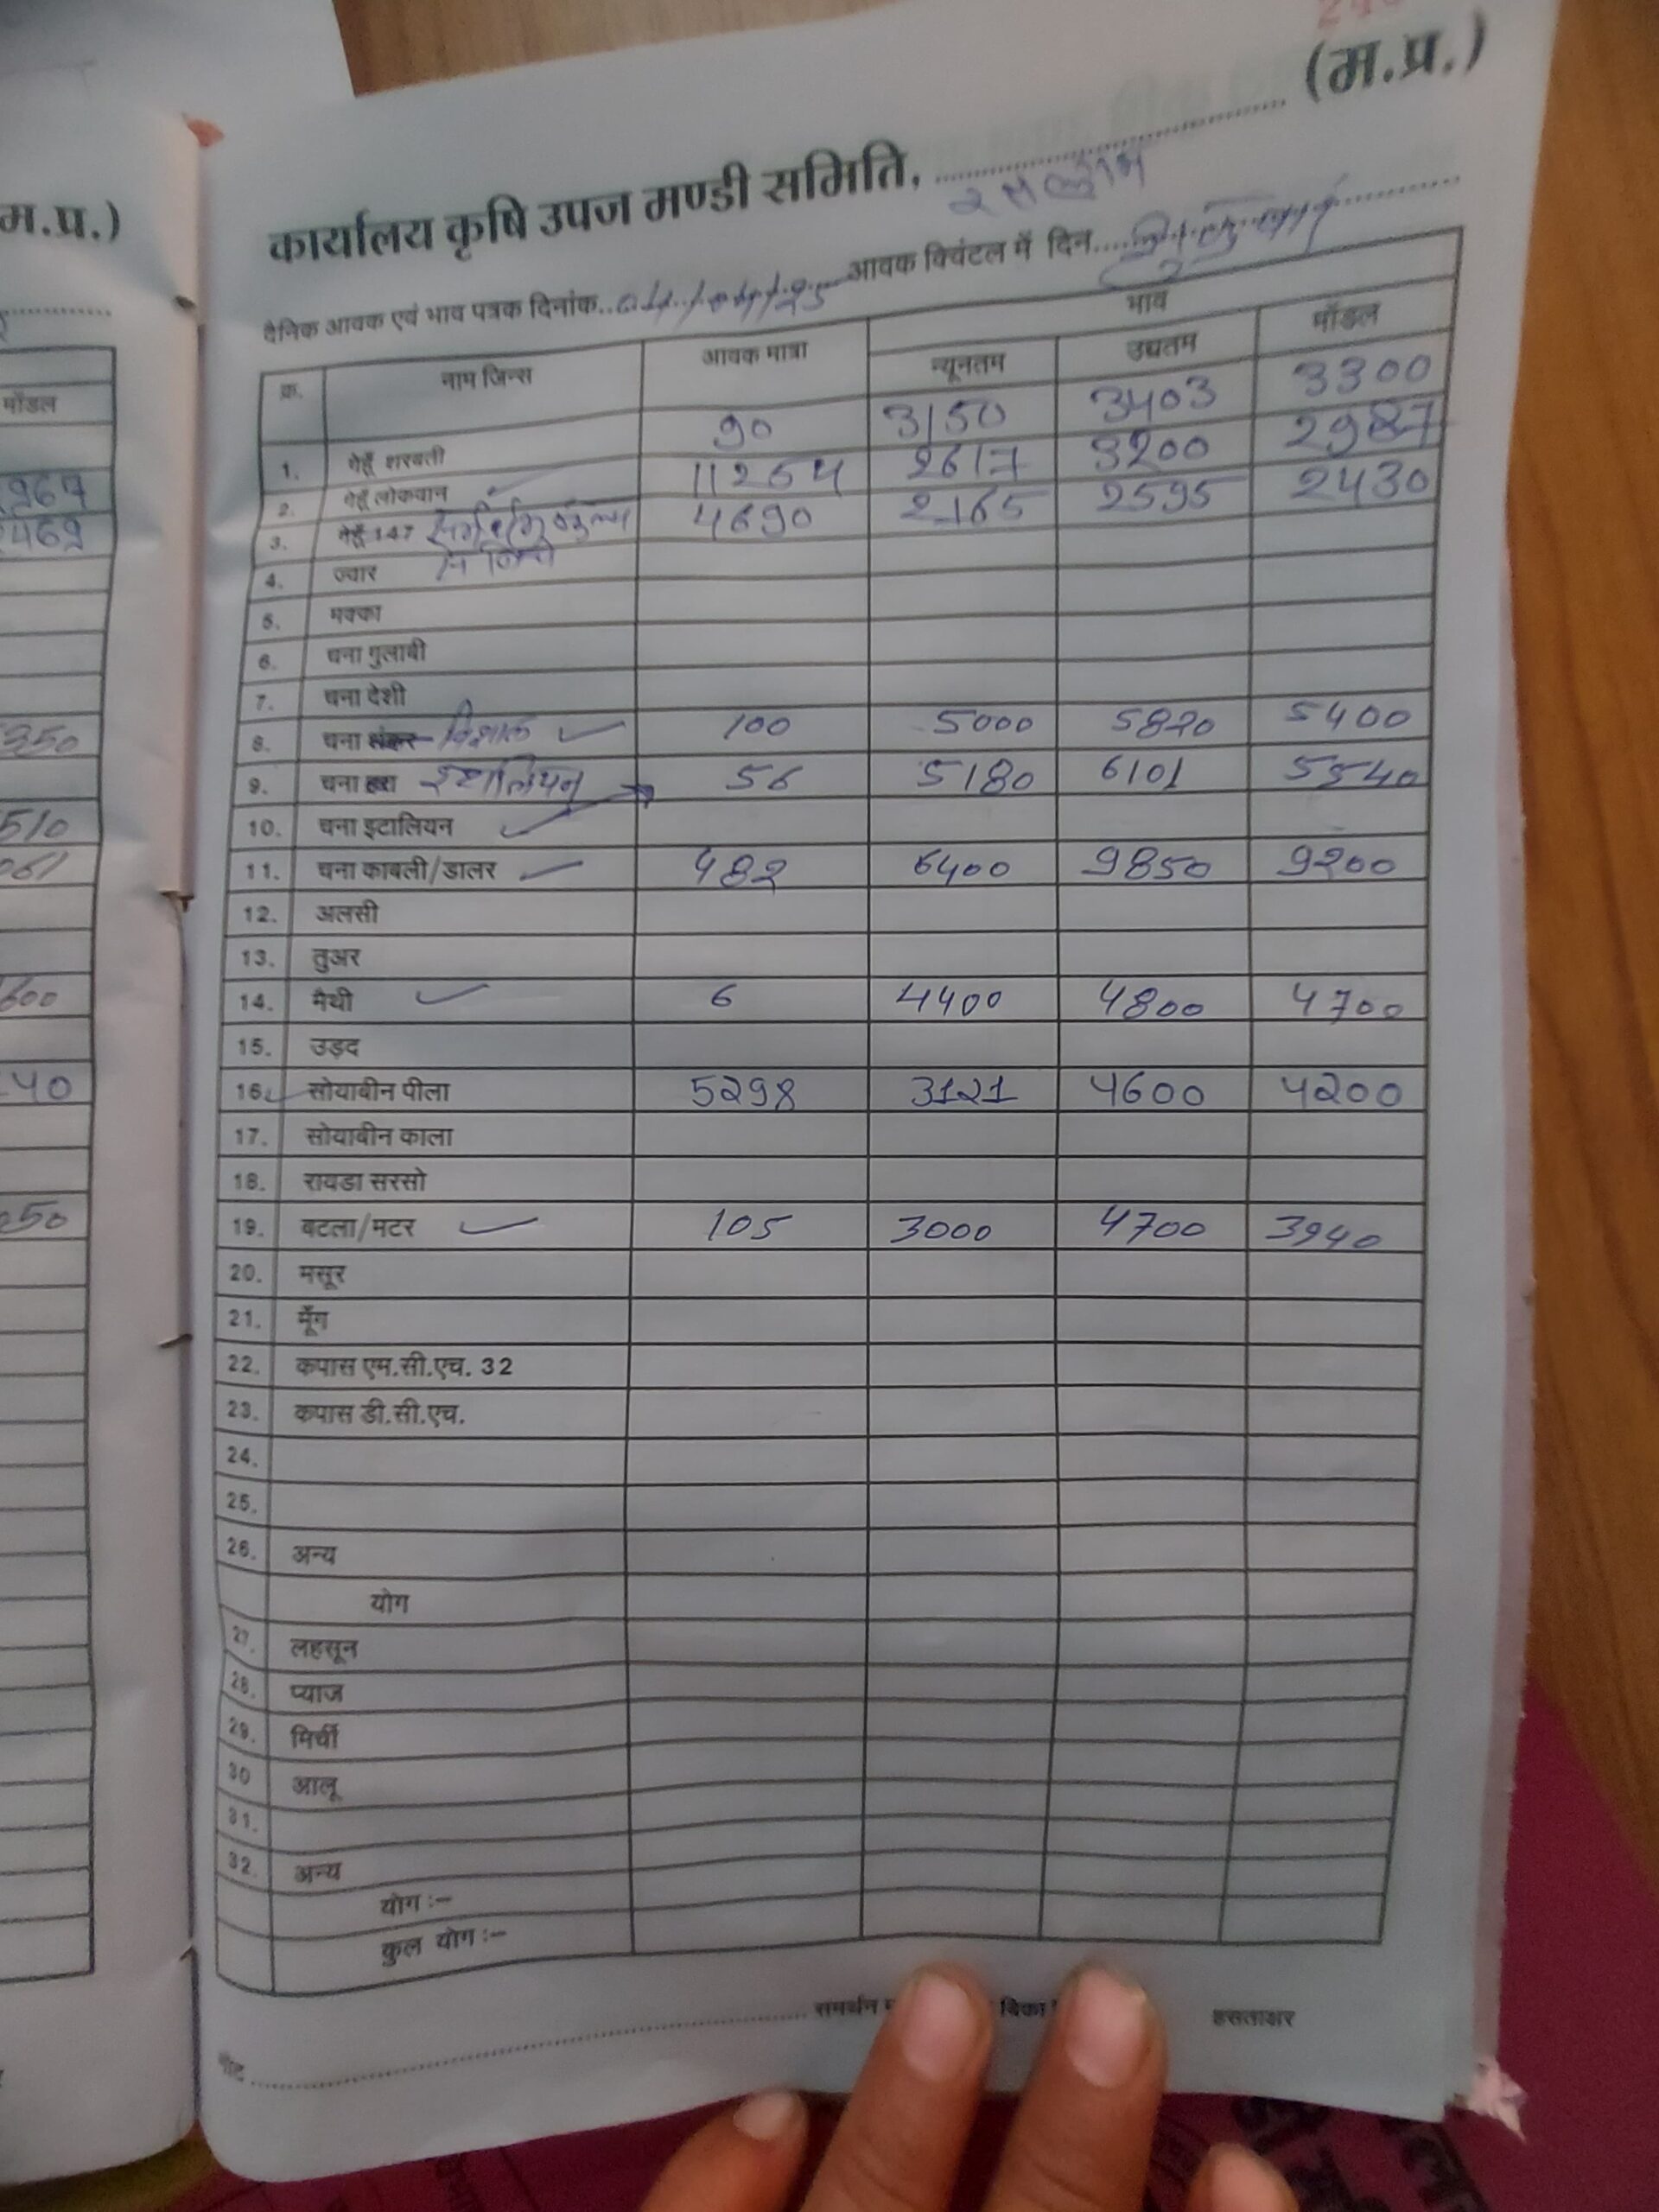 (म.प्र.)
कार्यालय कृषि उपज मण्डी समिति, रतलाम
दैनिक आवक एवं भाव पत्रक दिनांक.. आवक क्विंटल में दिन....
क्र. नाम जिन्स आवक मात्रा भाव
न्यूनतम उच्चतम मॉडल
1. गेहूँ शरबती 90 3150 3403 3300
2. गेहूँ लोकवान 11264 2617 3200 2987
3. गेहूँ 147 4690 2165 2595 2430
4. ज्वार
5. मक्का
6. चना गुलाबी
7. चना देशी
8. चना विशाल 100 5000 5820 5400
9. चना इटालियन 56 5180 6101 5540
10. चना इटालियन
11. चना काबली/डालर 482 6400 9850 9200
12. अलसी
13. तुअर
14. मैथी 6 4400 4800 4700
15. उड़द
16. सोयाबीन पीला 5298 3121 4600 4200
17. सोयाबीन काला
18. रायडा सरसो
19. बटला/मटर 105 3000 4700 3940
20. मसूर
21. मूँग
22. कपास एम.सी.एच. 32
23. कपास डी.सी.एच.
24.
25.
26. अन्य
योग
27. लहसून
28. प्याज
29. मिर्ची
30 आलू
31.
32. अन्य
योग :-
कुल योग :-
समर्थन
हस्ताक्षर
नोट
म.प्र.)
मॉडल
2469
350
510
061
600
40
250